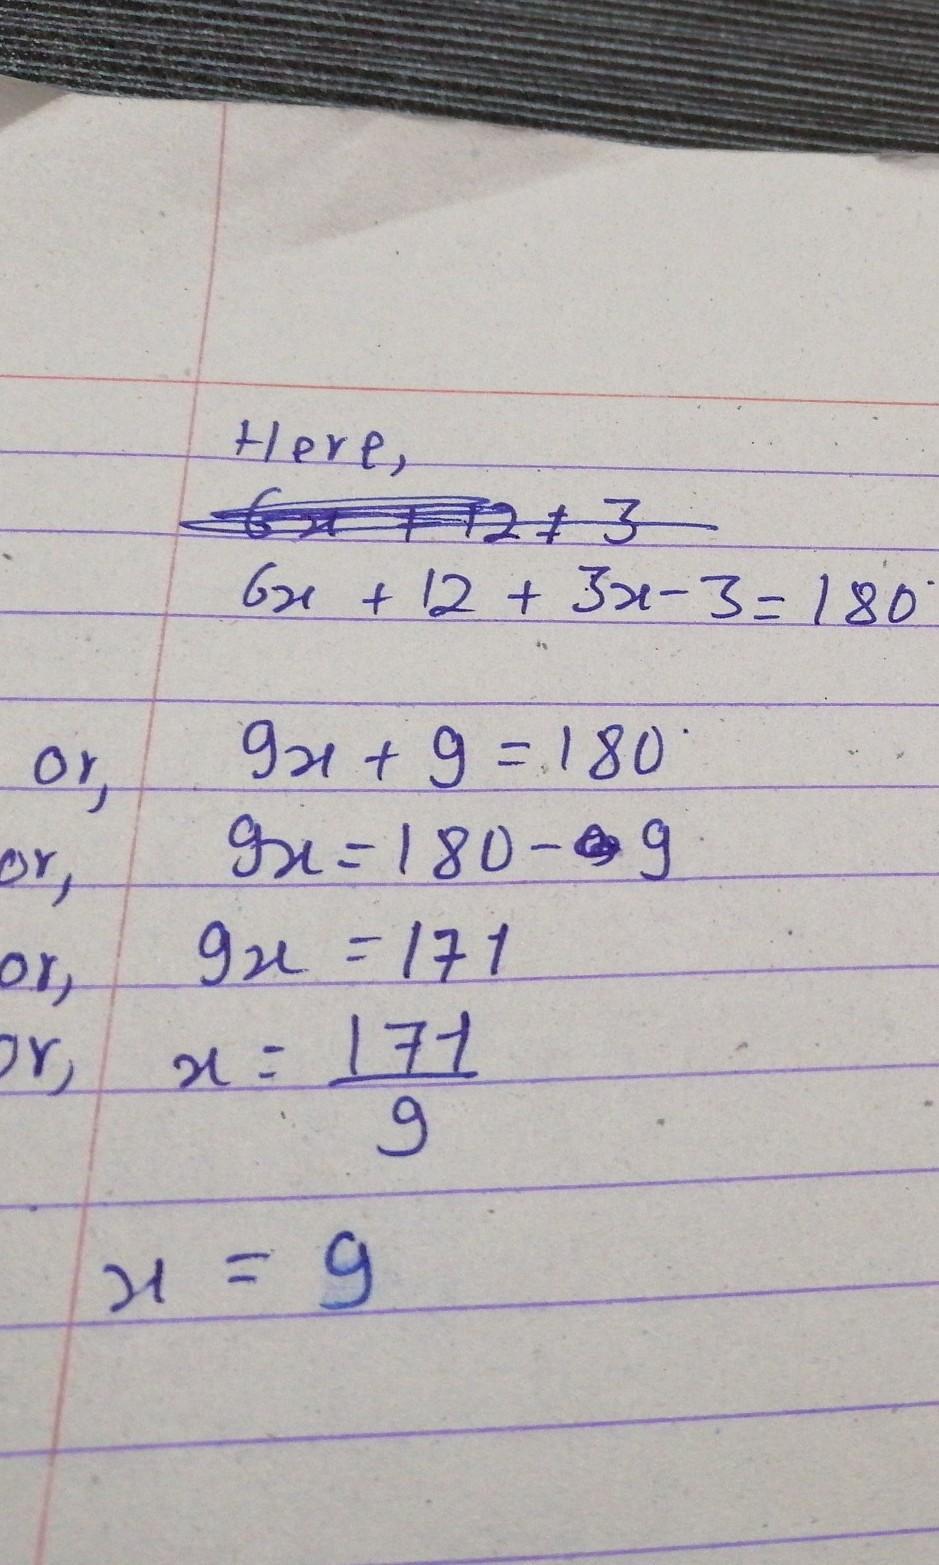 Here,
6x + 12 + 3
6x + 12 + 3x - 3 = 180°
or, 9x + 9 = 180°
or, 9x = 180 - 9
or, 9x = 171
or, x = 171/9
x = 9